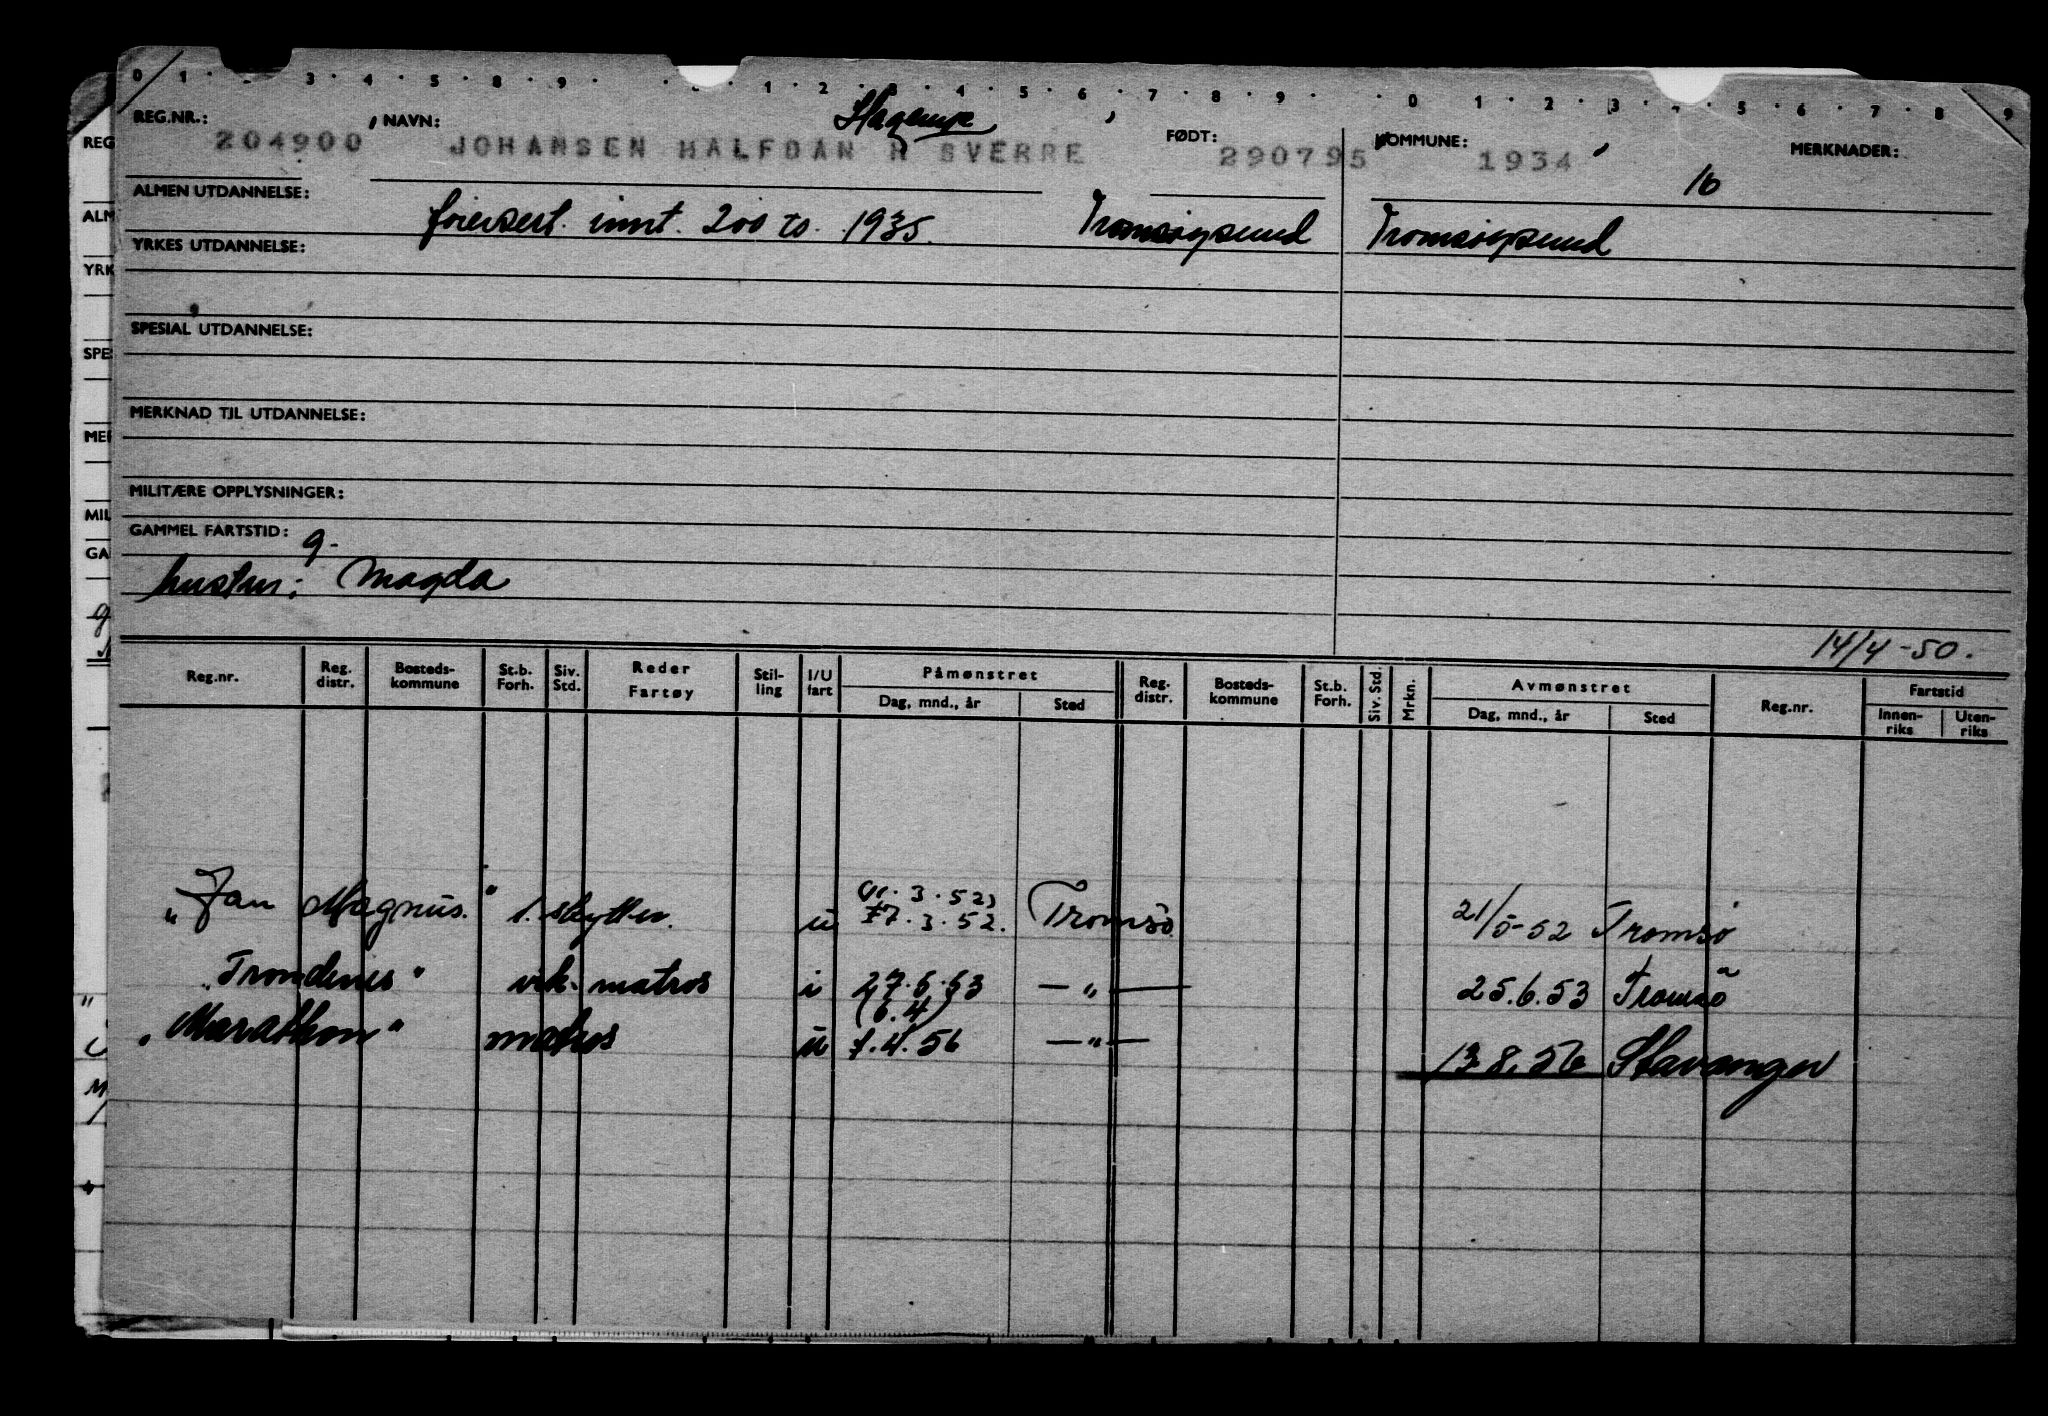 0 1 · 3 · 4 · 5 · 8 · 9 · · 1 · 2 · · 4 · 5 · 6 · 7 · 8 · 9 · · 0 1 · 2 · 3 · 5 · 6 · 7 · 8 · 9
REG.NR.: 204900 NAVN: JOHANSEN HALFDAN H SVERRE FØDT: 290795 KOMMUNE: 1934 MERKNADER:
16
ALMEN UTDANNELSE: innt. 200 to. 1935. Tromsøysund Tromsøysund
YRKES UTDANNELSE:
SPESIAL UTDANNELSE:
MERKNAD TIL UTDANNELSE:
MILITÆRE OPPLYSNINGER:
GAMMEL FARTSTID: g-
hustru: Magda
14/4-50.
Reg.nr. Reg. distr. Bosteds-kommune St.b. Forh. Siv. Std. Reder Fartøy Stil-ling I/U fart Påmønstret Dag, mnd., år Sted Reg. distr. Bosteds-kommune St.b. Forh. Siv. Std. Mrkn. Avmønstret Dag, mnd., år Sted Reg.nr. Fartstid Innen-riks Uten-riks
"Jan Magnus." 1. skytter. u 3.52, 3.52. Tromsø 21/5-52 Tromsø
"Trondenes" vik. matros i 27.6.53 —"— 25.6.53 Tromsø
(6.4)
"Marathon" matros u 7.4.56 —"— 13.8.56 Stavanger